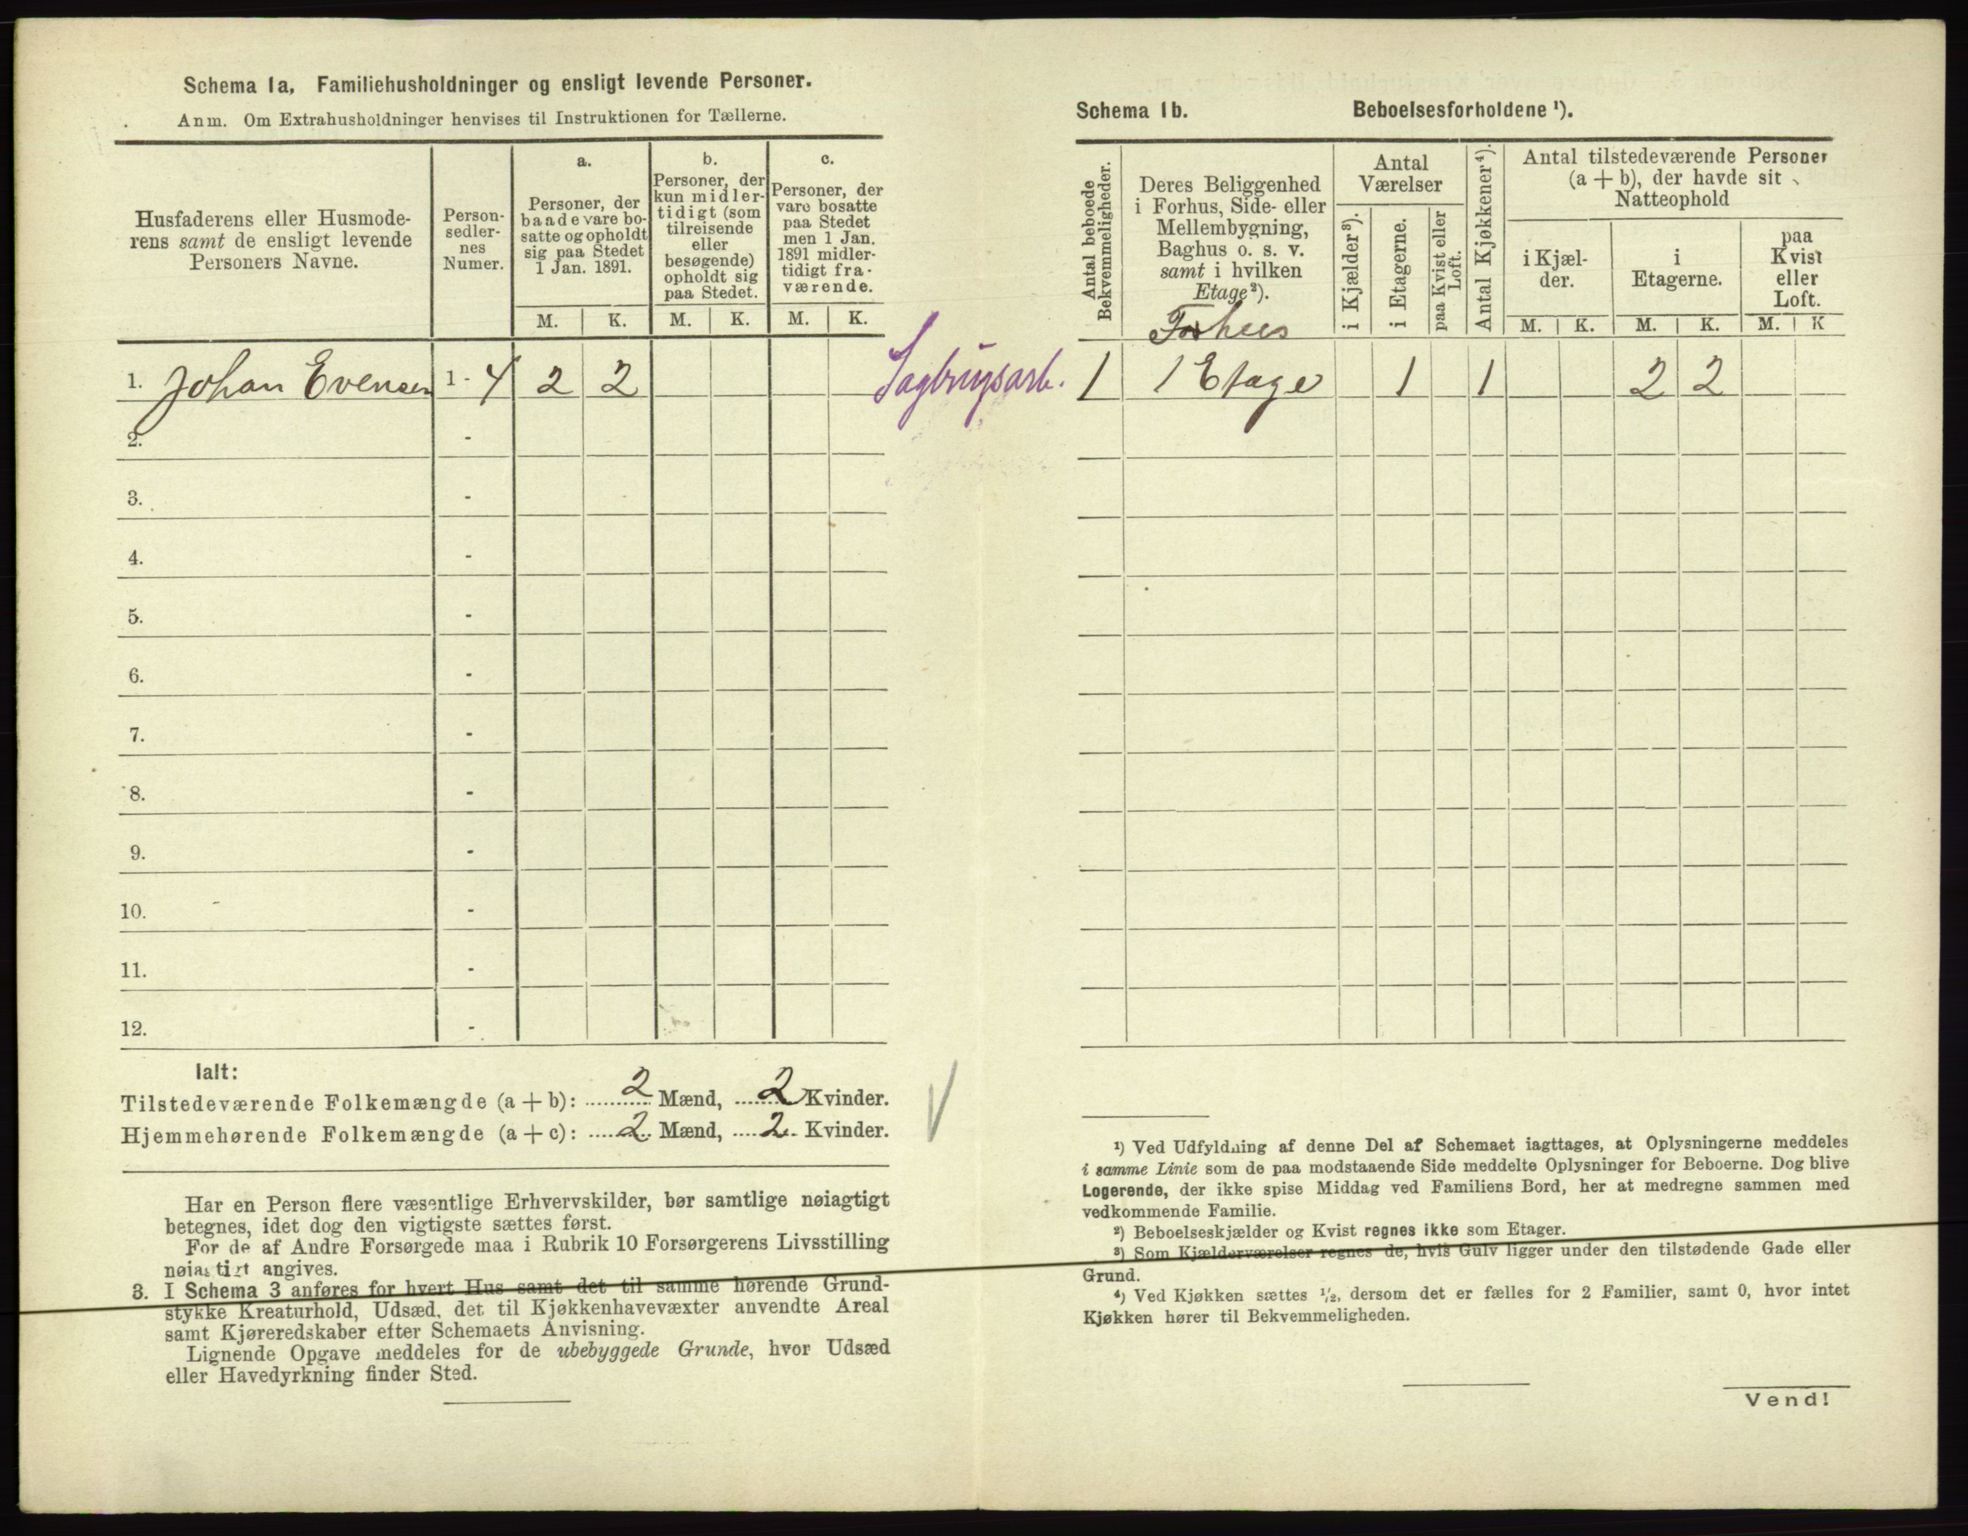 Schema 1a, Familiehusholdninger og ensligt levende Personer.
Anm. Om Extrahusholdninger henvises til Instruktionen for Tællerne.
Husfaderens eller Husmode-
rens samt de ensligt levende
Personers Navne.
Person-
sedler-
nes
Numer.
a.
Personer, der
baade vare bo-
satte og opholdt
sig paa Stedet
1 Jan. 1891.
b.
Personer, der
kun midler-
tidigt (som
tilreisende
eller
besøgende)
opholdt sig
paa Stedet.
c.
Personer, der
vare bosatte
paa Stedet
men 1 Jan.
1891 midler-
tidigt fra-
værende.
M. K. M. K. M. K.
1. Johan Evensen 1 - 4 2 2 Sagbrugsarb.
2. -
3. -
4. -
5. -
6. -
7. -
8. -
9. -
10. -
11. -
12. -
Ialt:
Tilstedeværende Folkemængde (a + b): 2 Mænd, 2 Kvinder.
Hjemmehørende Folkemængde (a + c): 2 Mænd, 2 Kvinder.
Har en Person flere væsentlige Erhvervskilder, bør samtlige nøiagtigt
betegnes, idet dog den vigtigste sættes først.
For de af Andre Forsørgede maa i Rubrik 10 Forsørgerens Livsstilling
nøiagtigt angives.
3. I Schema 3 anføres for hvert Hus samt det til samme hørende Grund-
stykke Kreaturhold, Udsæd, det til Kjøkkenhavevæxter anvendte Areal
samt Kjøreredskaber efter Schemaets Anvisning.
Lignende Opgave meddeles for de ubebyggede Grunde, hvor Udsæd
eller Havedyrkning finder Sted.
Schema 1b. Beboelsesforholdene ¹).
Antal beboede
Bekvemmeligheder.
Deres Beliggenhed
i Forhus, Side- eller
Mellembygning,
Baghus o. s. v.
samt i hvilken
Etage²).
Antal
Værelser
i Kjælder³).
i Etagerne.
paa Kvist eller
Loft.
Antal Kjøkkener⁴).
Antal tilstedeværende Personer
(a + b), der havde sit
Natteophold
i Kjæl-
der.
i
Etagerne.
paa
Kvist
eller
Loft.
M. K. M. K. M. K
Forhus
1 1 Etage 1 1 2 2
¹) Ved Udfyldning af denne Del af Schemaet iagttages, at Oplysningerne meddeles
i samme Linie som de paa modstaaende Side meddelte Oplysninger for Beboerne. Dog blive
Logerende, der ikke spise Middag ved Familiens Bord, her at medregne sammen med
vedkommende Familie.
²) Beboelseskjælder og Kvist regnes ikke som Etager.
³) Som Kjælderværelser regnes de, hvis Gulv ligger under den tilstødende Gade eller
Grund.
⁴) Ved Kjøkken sættes ¹/₂, dersom det er fælles for 2 Familier, samt 0, hvor intet
Kjøkken hører til Bekvemmeligheden.
Vend!